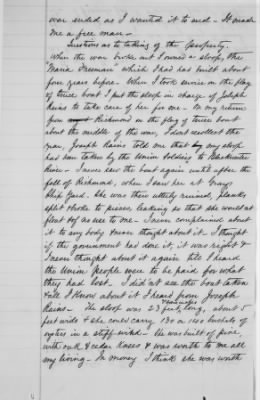 war ended as I wanted it to end - It made
me a free man -
Questions as to taking of the property.
When the war broke out I owned a sloop, the
"Maria Freeman" which I had built about
four years before - When I took service on the flag
of truce boat I put the sloop in charge of Joseph
Rains to take care of her for me - On my return
from Richmond in the flag of truce boat
about the middle of the war, I don't recollect the
year, Joseph Rains told me that my sloop
has been taken by the Union Soldiers to Blackwater
River - I never saw the boat again until after the
fall of Richmond, when I saw her at Grays
Ship Yard. She was then utterly ruined, planks
split & holes to pieces leaking so that she would not
float of no use to me - I never complained about
it to any body never thought about it - I thought
if the government had done it, it was right &
I never thought about it again till I heard
the Union People were to be paid for what
they had lost. I did not see the boat taken
& all I know about it I heard from Joseph
Rains - The sloop was 23 feet long, about 5
feet wide & she could carry 130 or 150 bushels of
oysters in a stiff wind - She was built of pine
with oak & cedar knees & was worth to me all
my living - In money I think she was worth